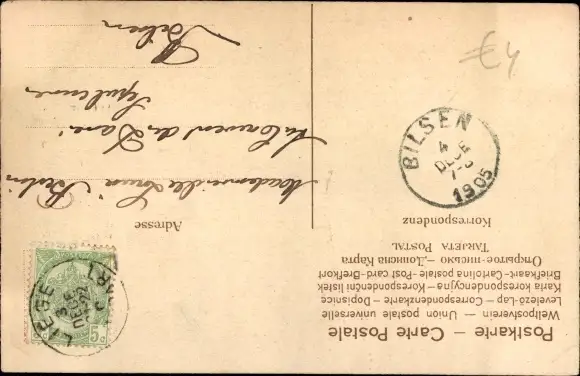 Postkarte — Carte Postale
Weltpostverein — Union postale universelle
Levelező-Lap — Correspondenzkarte — Dopisnice
Karta korespondencyjna — Korespondenční listek
Briefkaart — Cartolina postale — Post-card — Brefkort
Открытое-письмо — Дописна Карта
TARJETA POSTAL
Korrespondenz
Adresse
Mademoiselle Berlin
au Couvent des
Sépulcrines
Bilsen
LIEGE
3
DECE
5c
BILSEN
4
DECE
1905
€4